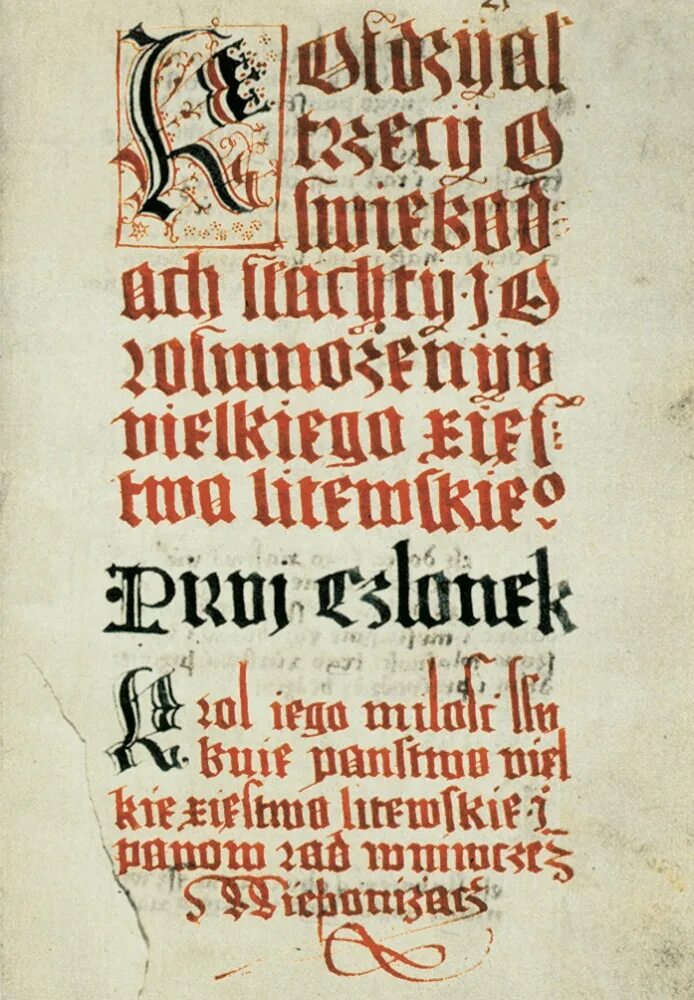 Roſdzijal
trzecij o
ſwiebod
ach ſlachty j o
roſmnożenijv
vielkiego xięſ:
twa litewſkieº
Prvij czlonek
Krol iego miloſc ſlu
buie panſtwo viel
kie xięſtwo litewſkie j
panow rad wniwcze
Nieponizacz